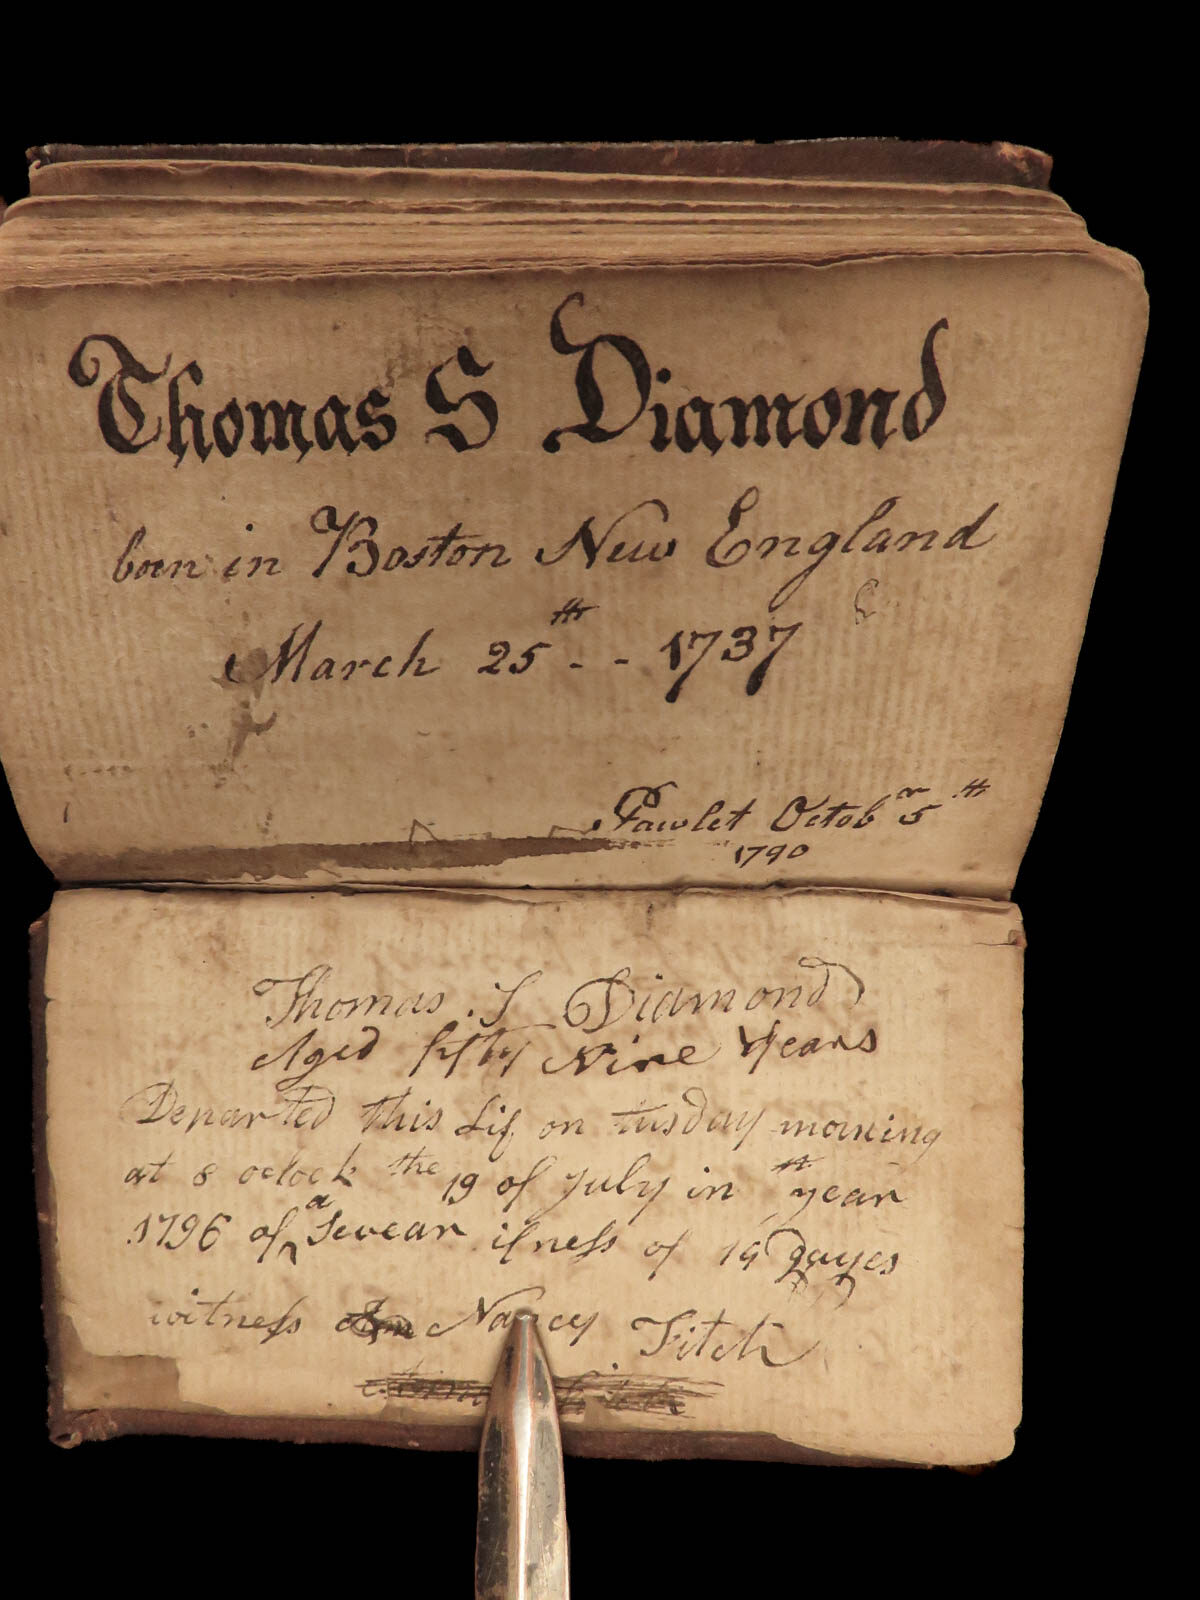 Thomas S Diamond
born in Boston New England
March 25th - - 1737
Pawlet Octobr 5th
1790
Thomas S Diamond
Aged fifty Nine Years
Departed this Lif on tusday morning
at 8 oclock the 19 of July in th year
1796 of a Sevear ilness of 19 dayes
witness Nancy Fitch